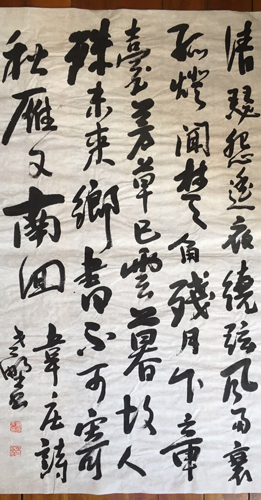 清瑟怨遙夜繞弦風雨哀
孤燈聞楚角殘月下章
臺芳草已雲暮故人
殊未來鄉書不可寄
秋雁又南回
韋庄詩